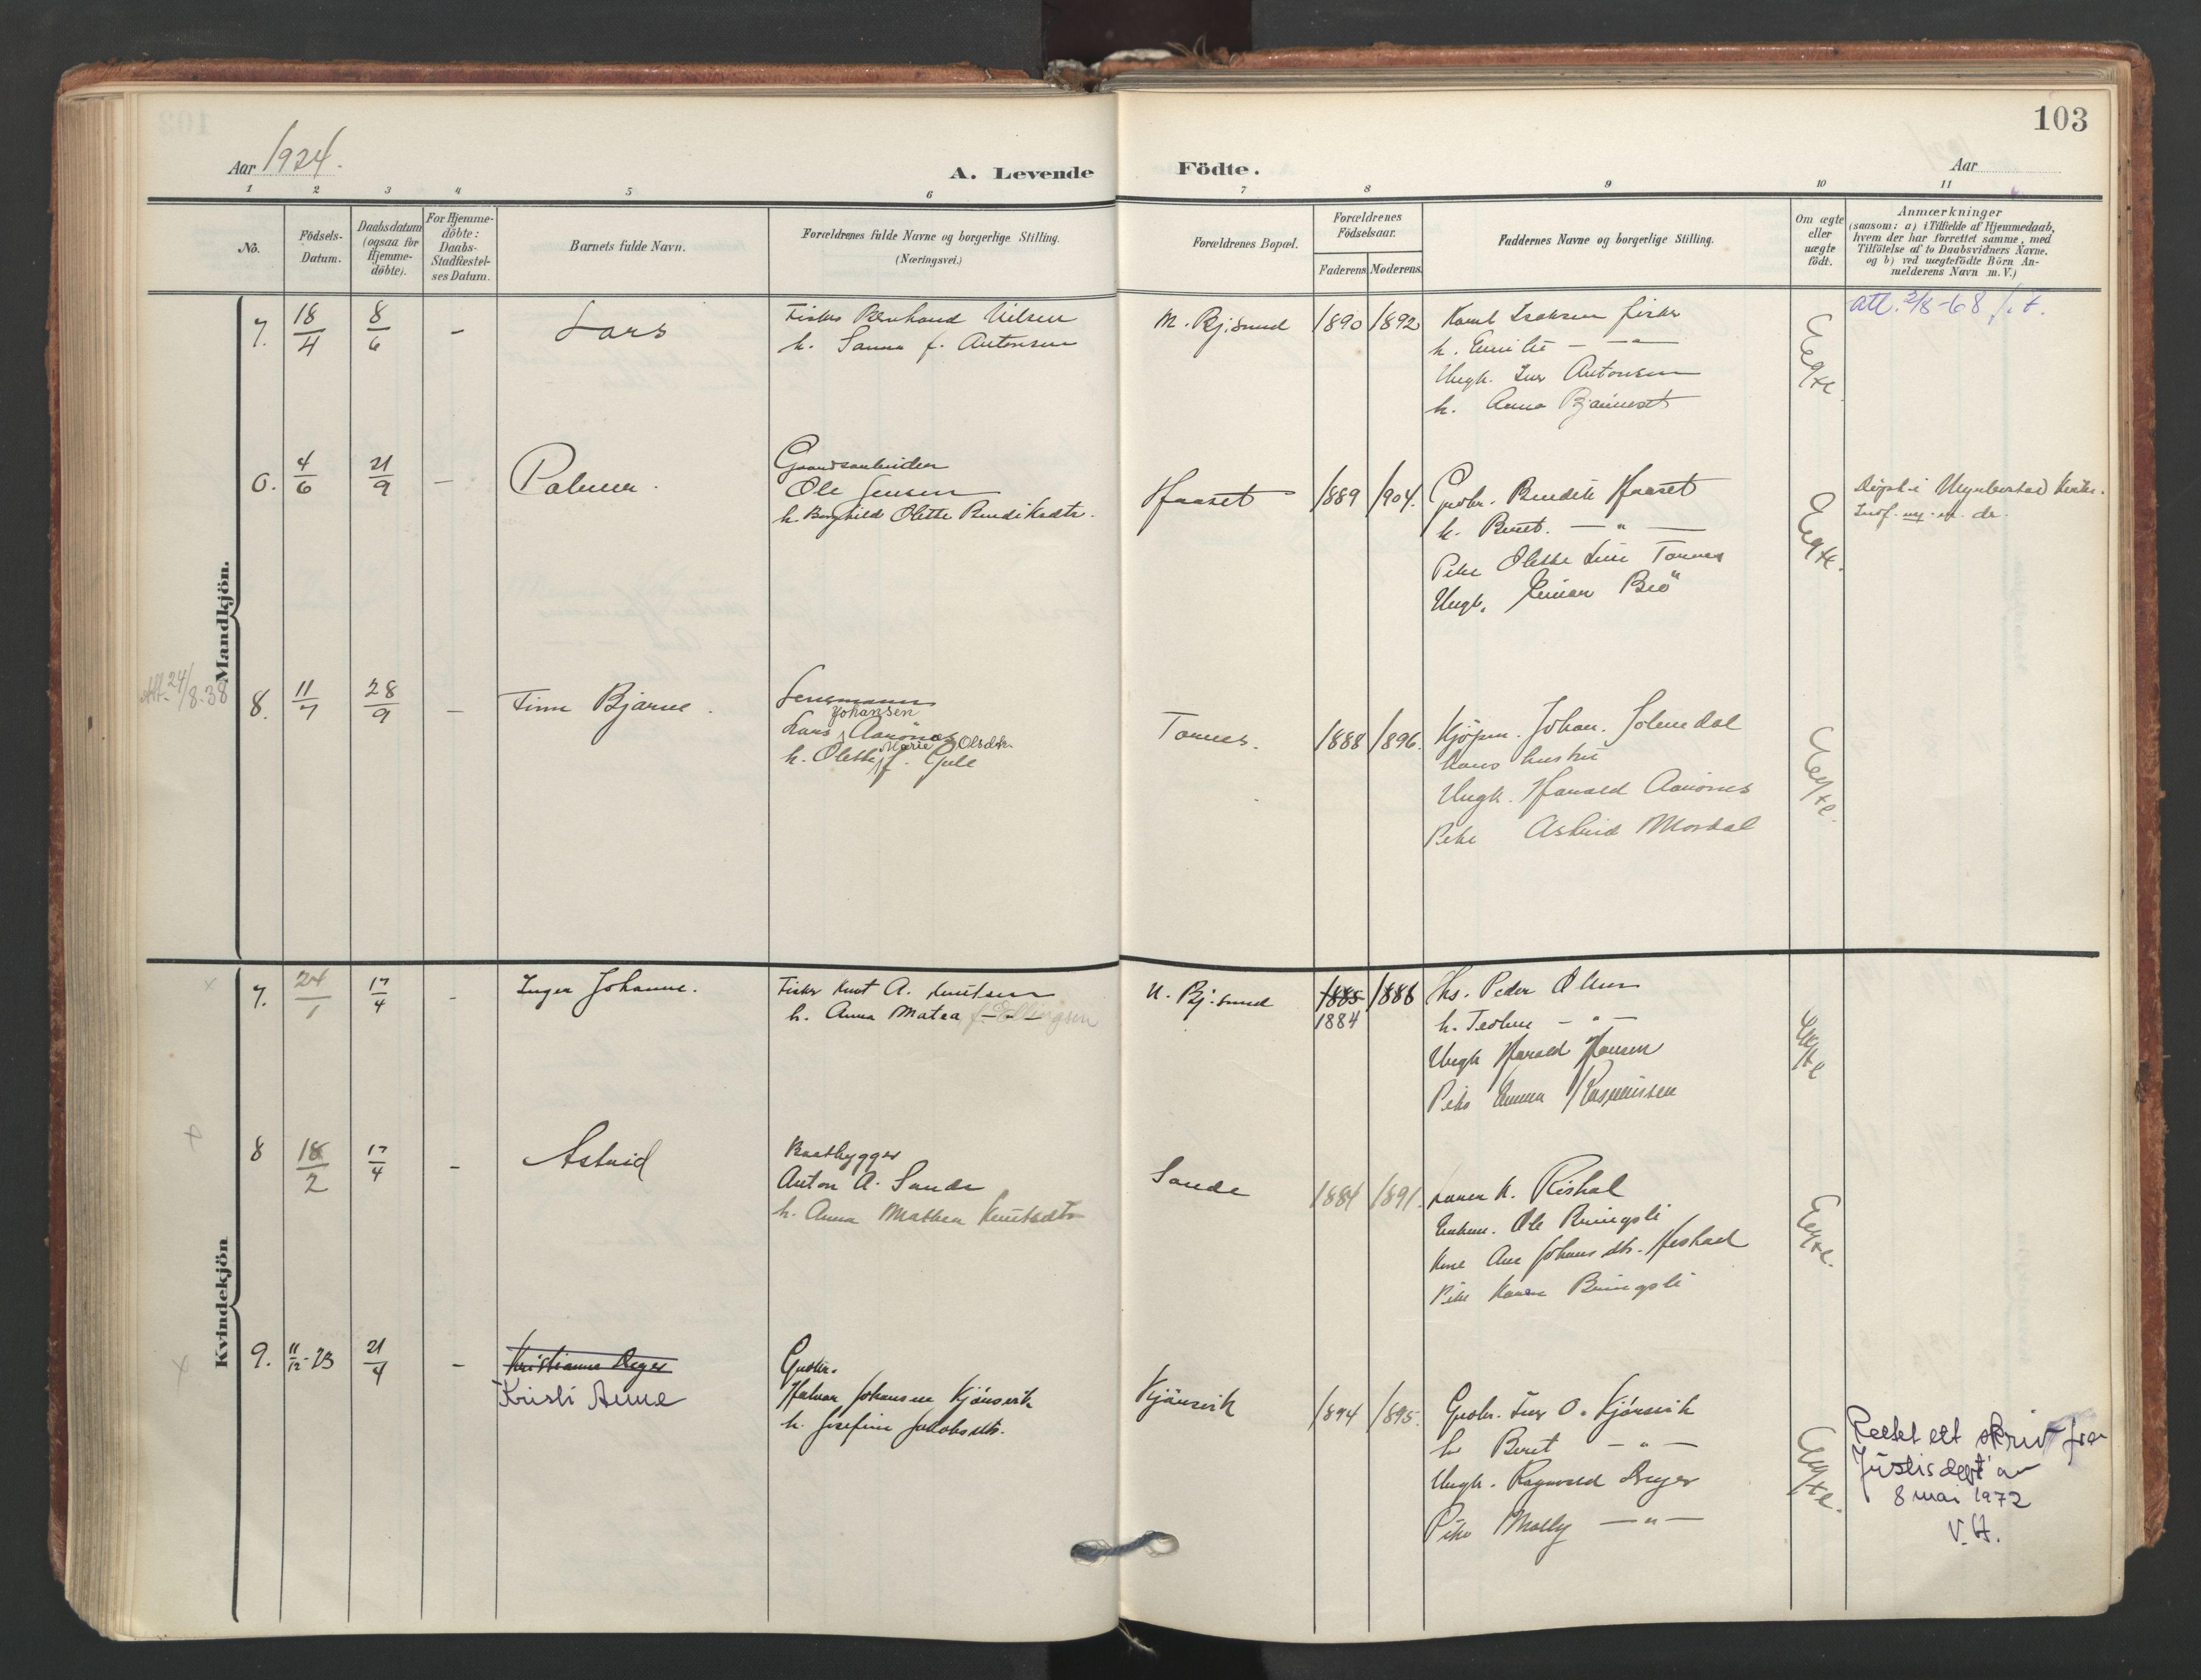 103
Aar 1924.
A. Levende Födte.
Aar
1 2 3 4 5 6 7 8 9 10 11
No.
Födsels-Datum.
Daabsdatum (ogsaa for Hjemme-döbte).
For Hjemme-döbte: Daabs-Stadfæstel-ses Datum.
Barnets fulde Navn.
Forældrenes fulde Navne og borgerlige Stilling.
(Næringsvei.)
Forældrenes Bopæl.
Forældrenes Födselsaar.
Faderens Moderens
Faddernes Navne og borgerlige Stilling.
Om ægte eller uægte födt.
Anmærkninger
(saasom: a) i Tilfælde af Hjemmedaab,
hvem der har forrettet samme, med
Tilföielse af to Daabsvidners Navne,
og b) ved uægtefödte Börn An-
melderens Navn m. V.)
Mandkjön.
7. 18/4 8/6 - Lars
Fisker Bernhard Nilsen
h. Sanna f. Antonsen
M. Bj.sund 1890 1892
Isaksen fisker
h. - " -
Ungk. Antonsen
h. Anna
Ægte
att. 2/8-68
0. 4/6 21/9 - Palmer.
Gaardsarbeider
Ole Jensen
h. Borghild Olette
Haaset 1889 1904.
Grbr. Haaset
h. Beret. - " -
Pike Olette Line Tornes
Ungk. Einar
Ægte.
Att. 24/8-38
8. 11/7 28/9 - Finn Bjarne.
Lensmann
Johansen
Lars Aarönes
Marie Olsdtr.
h. Olette f. Gule
Tornes. 1888 1896.
Kjöpm. Johan. Solemdal
hans hustru
Ungk. Harald Aarönes
Pike Astrid Mordal
Ægte.
Kvindekjön
7. 24/1 17/4 - Inger Johanne.
Fisker Knut A. Knutsen
h. Anna Matea f. Ellingsen
N. Bj.sund 1885 1886
1884
Fis. Peder Olsen
h. - " -
Ungk Harald Hansen
Pike Emma Rasmussen
Ægte
8 18/2 17/4 - Astrid
Baatbygger
Anton A. Sande
h. Anna Mathea Knutsdtr
Sande 1884 1891.
Ole Bringsli
Kone Ane Johansdtr.
Pike Karen Bringsli
Ægte.
9. 11/12-23 21/4 - Kristianna Dreyer
Kristi Anne
Gaardbr.
Halvor Johansen Kjörsvik
h. Josefine Jakobsdtr.
Kjörsvik 1894 1895.
Gaardbr. Iver O. Kjörsvik
h. Beret - " -
Ungk. Ragnvald Dreyer
Pike Molly - " -
Ægte.
Rettet ett skriv fra
Justisdept av
8 mai 1972
V. H.